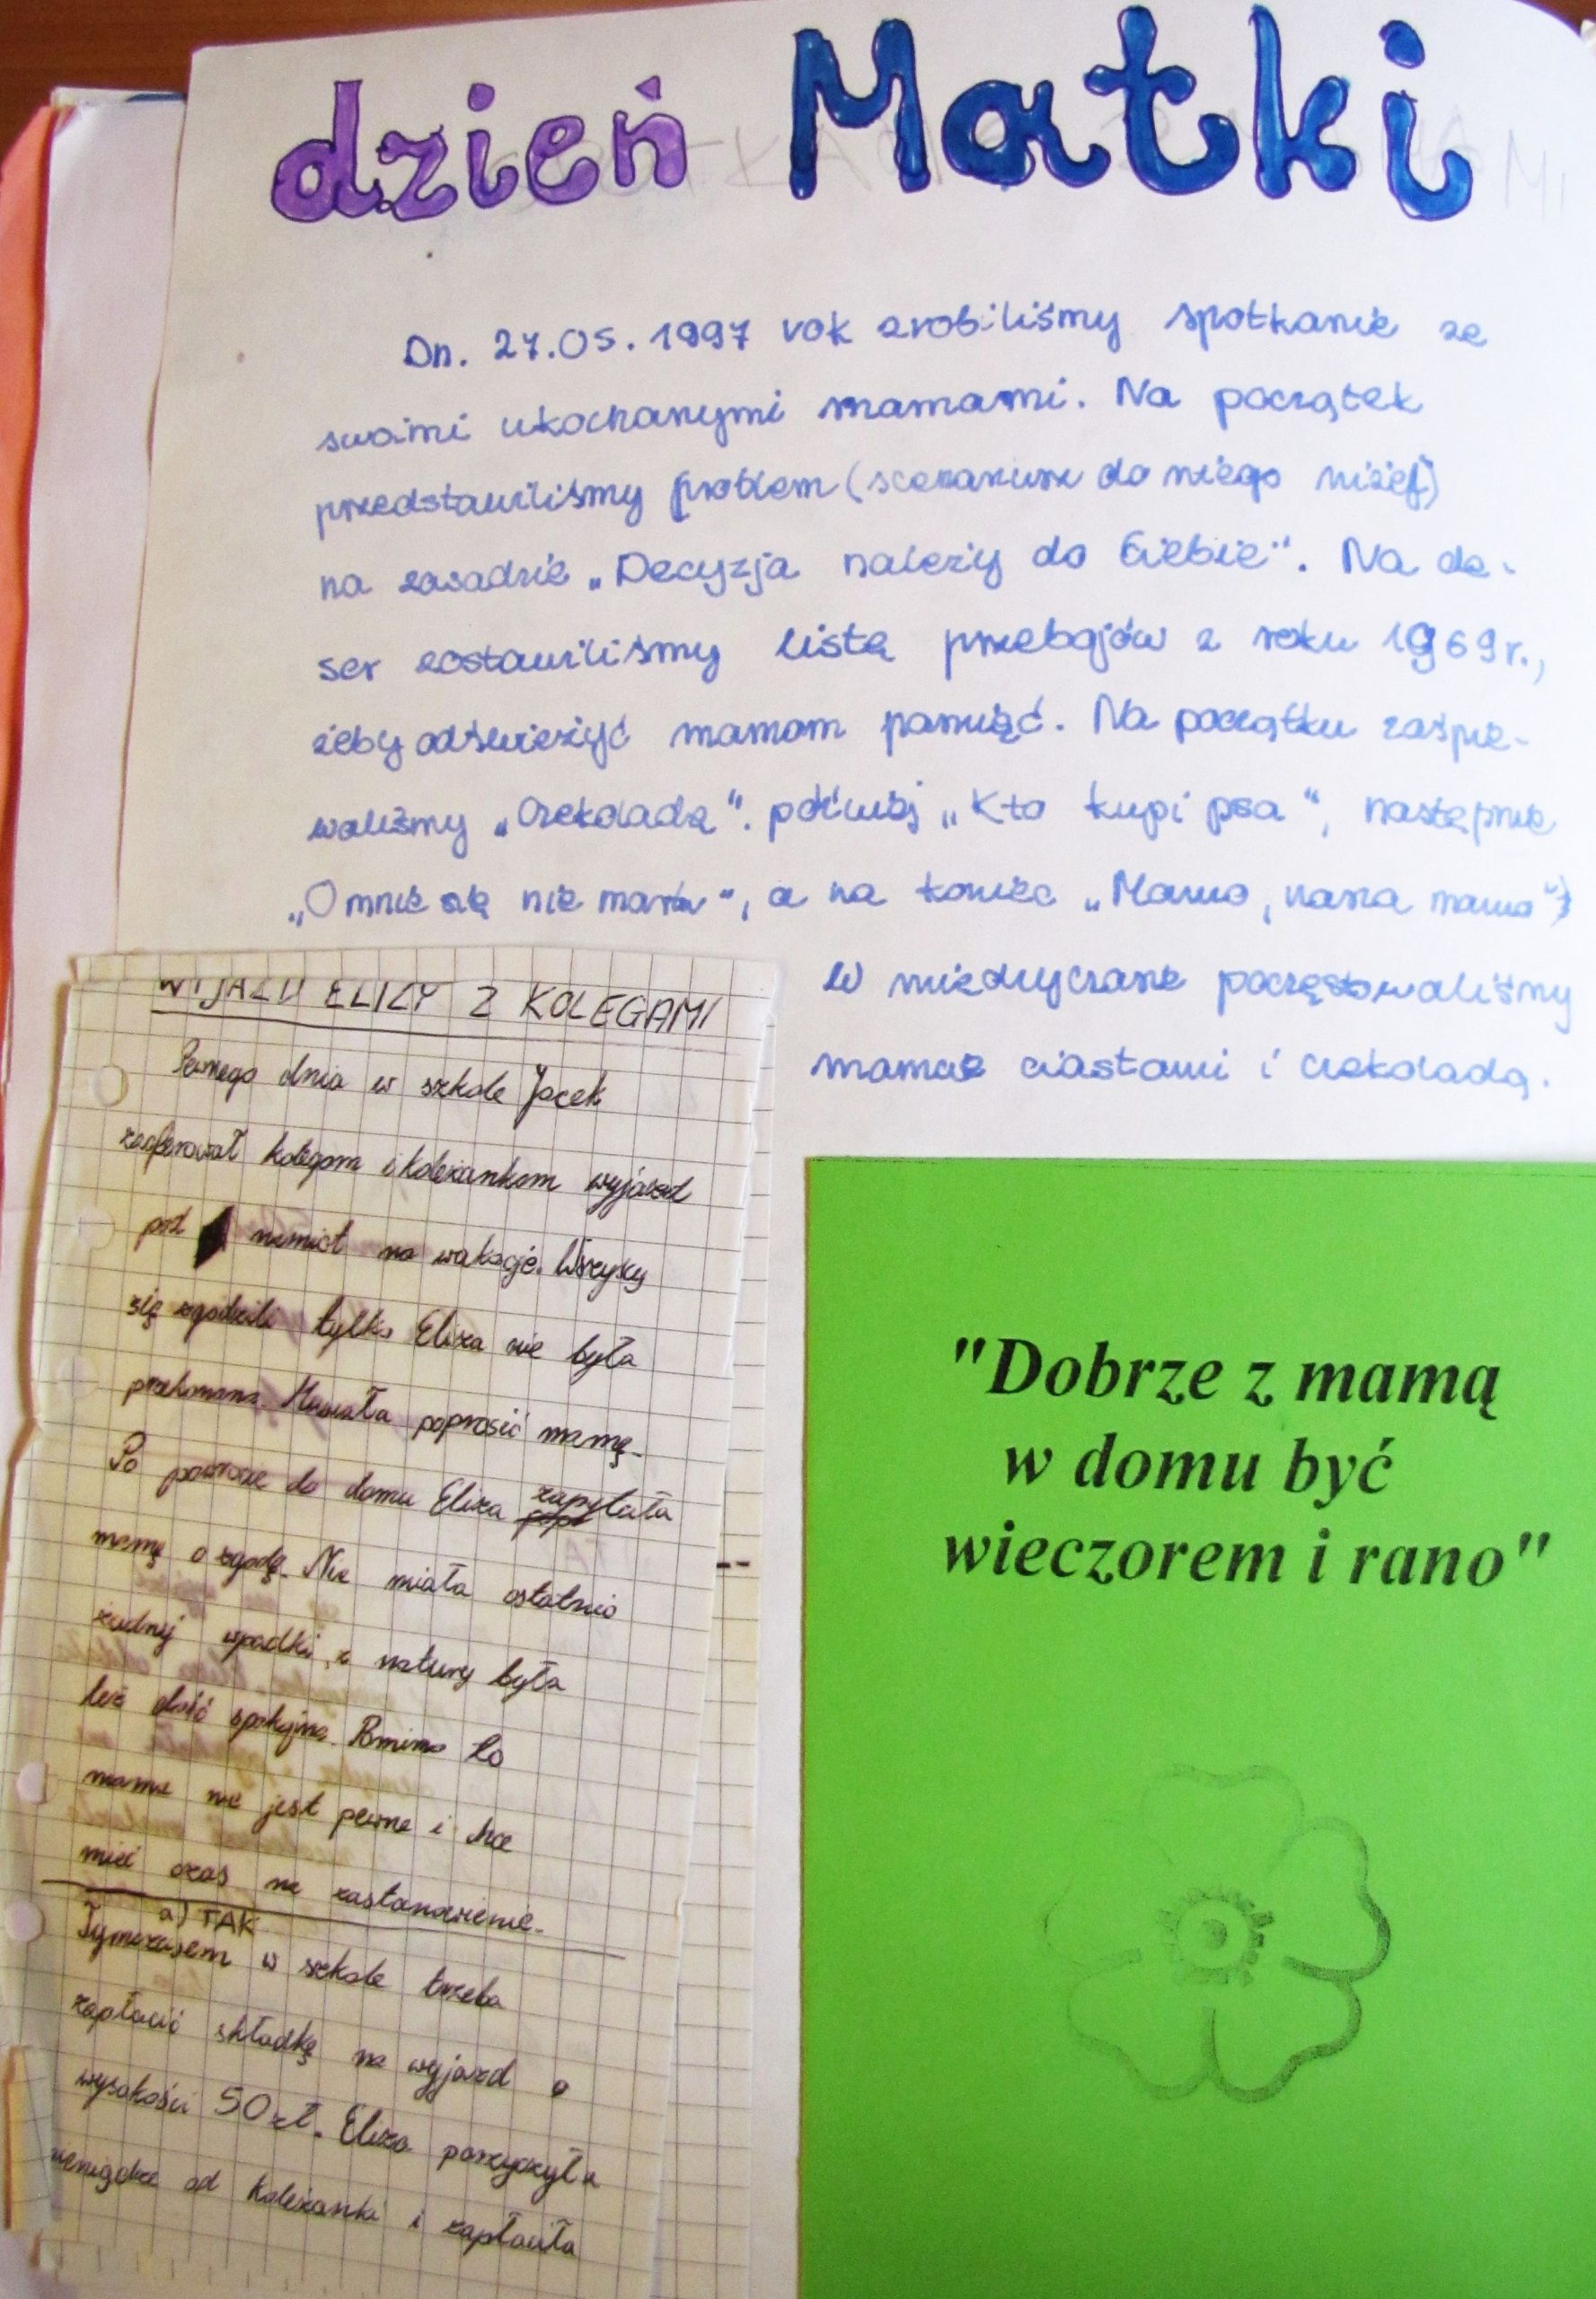 dzień Matki
Dn. 27.05.1997 rok zrobiliśmy spotkanie ze
swoimi ukochanymi mamami. Na początek
przedstawiliśmy problem (scenariusz do niego niżej)
na zasadzie „Decyzja należy do Ciebie". Na de-
ser zostawiliśmy listę przebojów z roku 1969r.,
żeby odświeżyć mamom pamięć. Na początku zaśpie-
waliśmy „Czekoladę". później „Kto kupi psa", następnie
„O mnie się nie martw", a na koniec „Mamo, nasza mamo")
W międzyczasie poczęstowaliśmy
mamę ciastami i czekoladą.
WYJAZD ELIZY Z KOLEGAMI
Pewnego dnia w szkole Jacek
zaoferował kolegom i koleżankom wyjazd
pod namiot na wakacje. Wszyscy
się zgodzili tylko Eliza nie była
przekonana. Musiała poprosić mamę.
Po powrocie do domu Eliza zapytała
mamę o zgodę. Nie miała ostatnio
żadnej wpadki, z natury była
też dość spokojna. Pomimo to
mama nie jest pewna i chce
mieć czas na zastanowienie.
a) TAK
Tymczasem w szkole trzeba
zapłacić składkę na wyjazd o
wysokości 50 zł. Eliza pożyczyła
pieniądze od koleżanki i zapłaciła
"Dobrze z mamą
w domu być
wieczorem i rano"